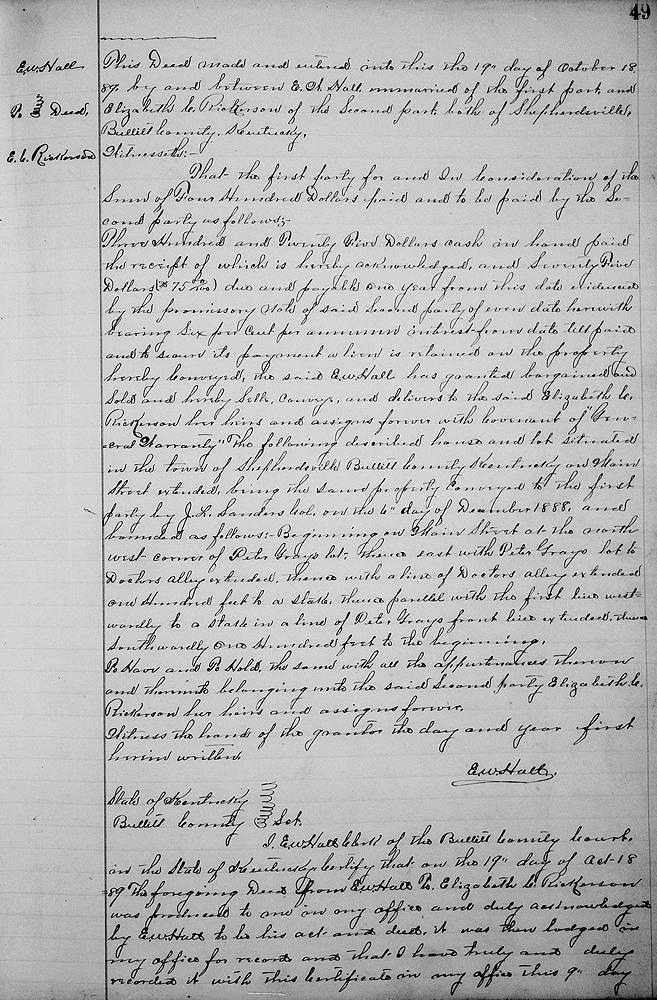 49
E.W. Hall
To Deed,
E.C. Rickerson
This Deed made and entered into this the 19" day of October 18
89. by and between E. W. Hall, unmarried of the first part, and
Elizabeth C. Rickerson of the Second part, both of Shepherdsville,
Bullitt County, Kentucky,
Witnesseth:-
That the first party for and In Consideration of the
Sum of Four Hundred Dollars paid and to be paid by the Se-
cond party as follows;-
Three Hundred and Twenty Five Dollars cash in hand paid
the receipt of which is hereby acknowledged, and Seventy Five
Dollars ($75 00/100) due and payable one year from this date evidenced
by the promissory note of said Second party of even date herewith
bearing Six per cent per annum interest from date till paid
and to secure its payment a lien is retained on the property
hereby Conveyed, the said E.W. Hall has granted bargained and
Sold and hereby Sells, Conveys, and delivers to the said Elizabeth C.
Rickerson her heirs and assigns forever with Covenant of "Gen-
-eral Warranty" The following described house and lot situated
in the town of Shepherdsville Bullitt County Kentucky on Main
Street extended, being the same property Conveyed to the first
party by J.K. Sanders on the 6" day of December 1888, and
bounded as follows:- Beginning on Main Street at the north
west corner of Peter Grays lot; thence east with Peter Grays lot to
Doctors alley extended, thence with a line of Doctors alley extended
one Hundred feet to a stake, thence parallel with the first line west-
wardly to a stake in a line of Peter Grays front line extended, thence
Southwardly One Hundred feet to the beginning.
To Have and To Hold, the same with all the appurtenances thereon
and thereunto belonging unto the said Second party Elizabeth C.
Rickerson her heirs and assigns forever.
Witness the hand of the grantor the day and year first
herein written.
E.W. Hall.
State of Kentucky
Bullitt County Sct.
I. E.W. Hall Clerk of the Bullitt County Court,
in the State of Kentucky, Certify that on the 19" day of Oct. 18
89 The foregoing Deed from E.W. Hall To. Elizabeth C. Rickerson
was produced to me in my office and duly acknowledged
by E.W. Hall to be his act and deed, it was then lodged in
my office for record and that I have truly and duly
recorded it with this Certificate in my office this 9" day